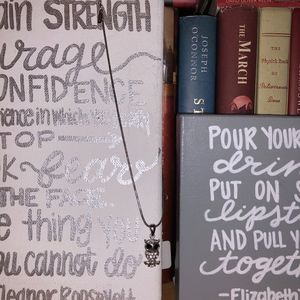 ain STRENGTH
urage
ONFIDENCE
rience in which you
TOP
K fear
THE FACE.
e thing you
ou cannot do
Eleanor Roosevelt
JOSEPH
O'CONNOR
THE MARCH
POUR YOUR
drin
PUT ON S
lipst
AND PULL Y
togeth
—Elizabeth